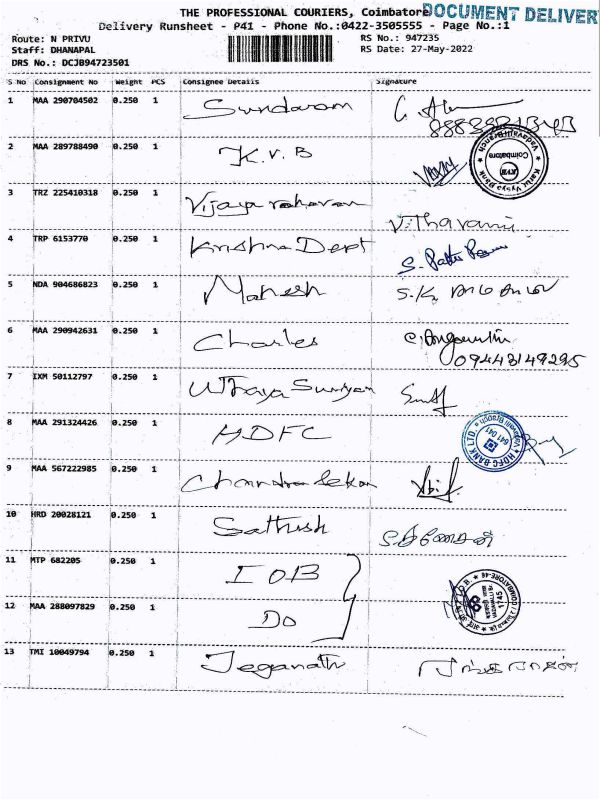 THE PROFESSIONAL COURIERS, Coimbatore DOCUMENT DELIVER
Delivery Runsheet - P41 - Phone No.:0422-3505555 - Page No.:1
Route: N PRIVU RS No.: 947235
Staff: DHANAPAL RS Date: 27-May-2022
DRS No.: DCJB94723501
S No Consignment No Weight PCS Consignee Details Signature
1 MAA 290704502 0.250 1 Sundaram
2 MAA 289788490 0.250 1 K.V.B
Karur Vysya Bank Vadavalli Branch KVB Coimbatore
3 TRZ 225410318 0.250 1 Vijaya raharan
4 TRP 6153770 0.250 1 Krishna Dept
5 NDA 904686823 0.250 1 Mahesh
6 MAA 290942631 0.250 1 Charles
09443149295
7 IXM 50112797 0.250 1 Uthaya Suriyan
8 MAA 291324426 0.250 1 HDFC
HDFC BANK LTD. 641 041
9 MAA 567222985 0.250 1 Chandra Sekar
10 HRD 20028121 0.250 1 Sathish
11 MTP 682205 0.250 1 IOB
12 MAA 288097829 0.250 1 Do
1745 COIMBATORE-46
13 TMI 10049794 0.250 1 Jeganath